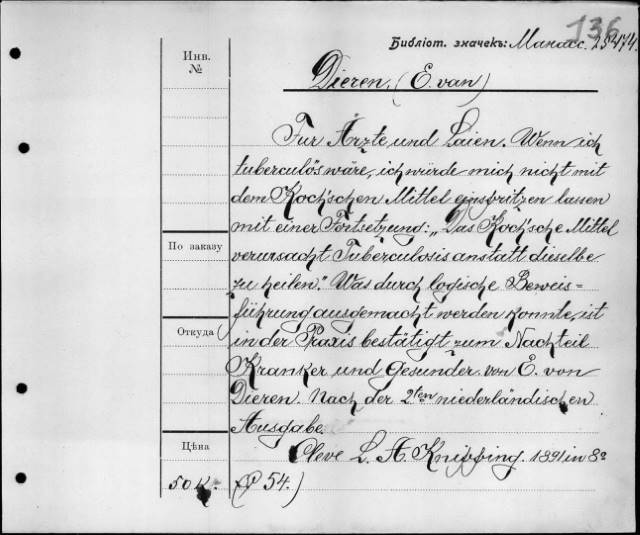 136
Библіот. значекъ: Манасс. 25474.
Инв.
№
Dieren, (E. van)
Für Ärzte und Laien. Wenn ich
tuberculös wäre, ich würde mich nicht mit
dem Koch'schen Mittel einspritzen lassen
mit einer Fortsetzung: „Das Koch'sche Mittel
verursacht Tuberculosis anstatt dieselbe
zu heilen." Was durch logische Beweis=
führung ausgemacht werden konnte, ist
in der Praxis bestätigt zum Nachteil
Kranker und Gesunder von E. von
Dieren. Nach der 2ten niederländischen
Ausgabe
Cleve L. A. Knipping. 1891 in 8º
(P 54.)
По заказу
Откуда
Цѣна
50 к.